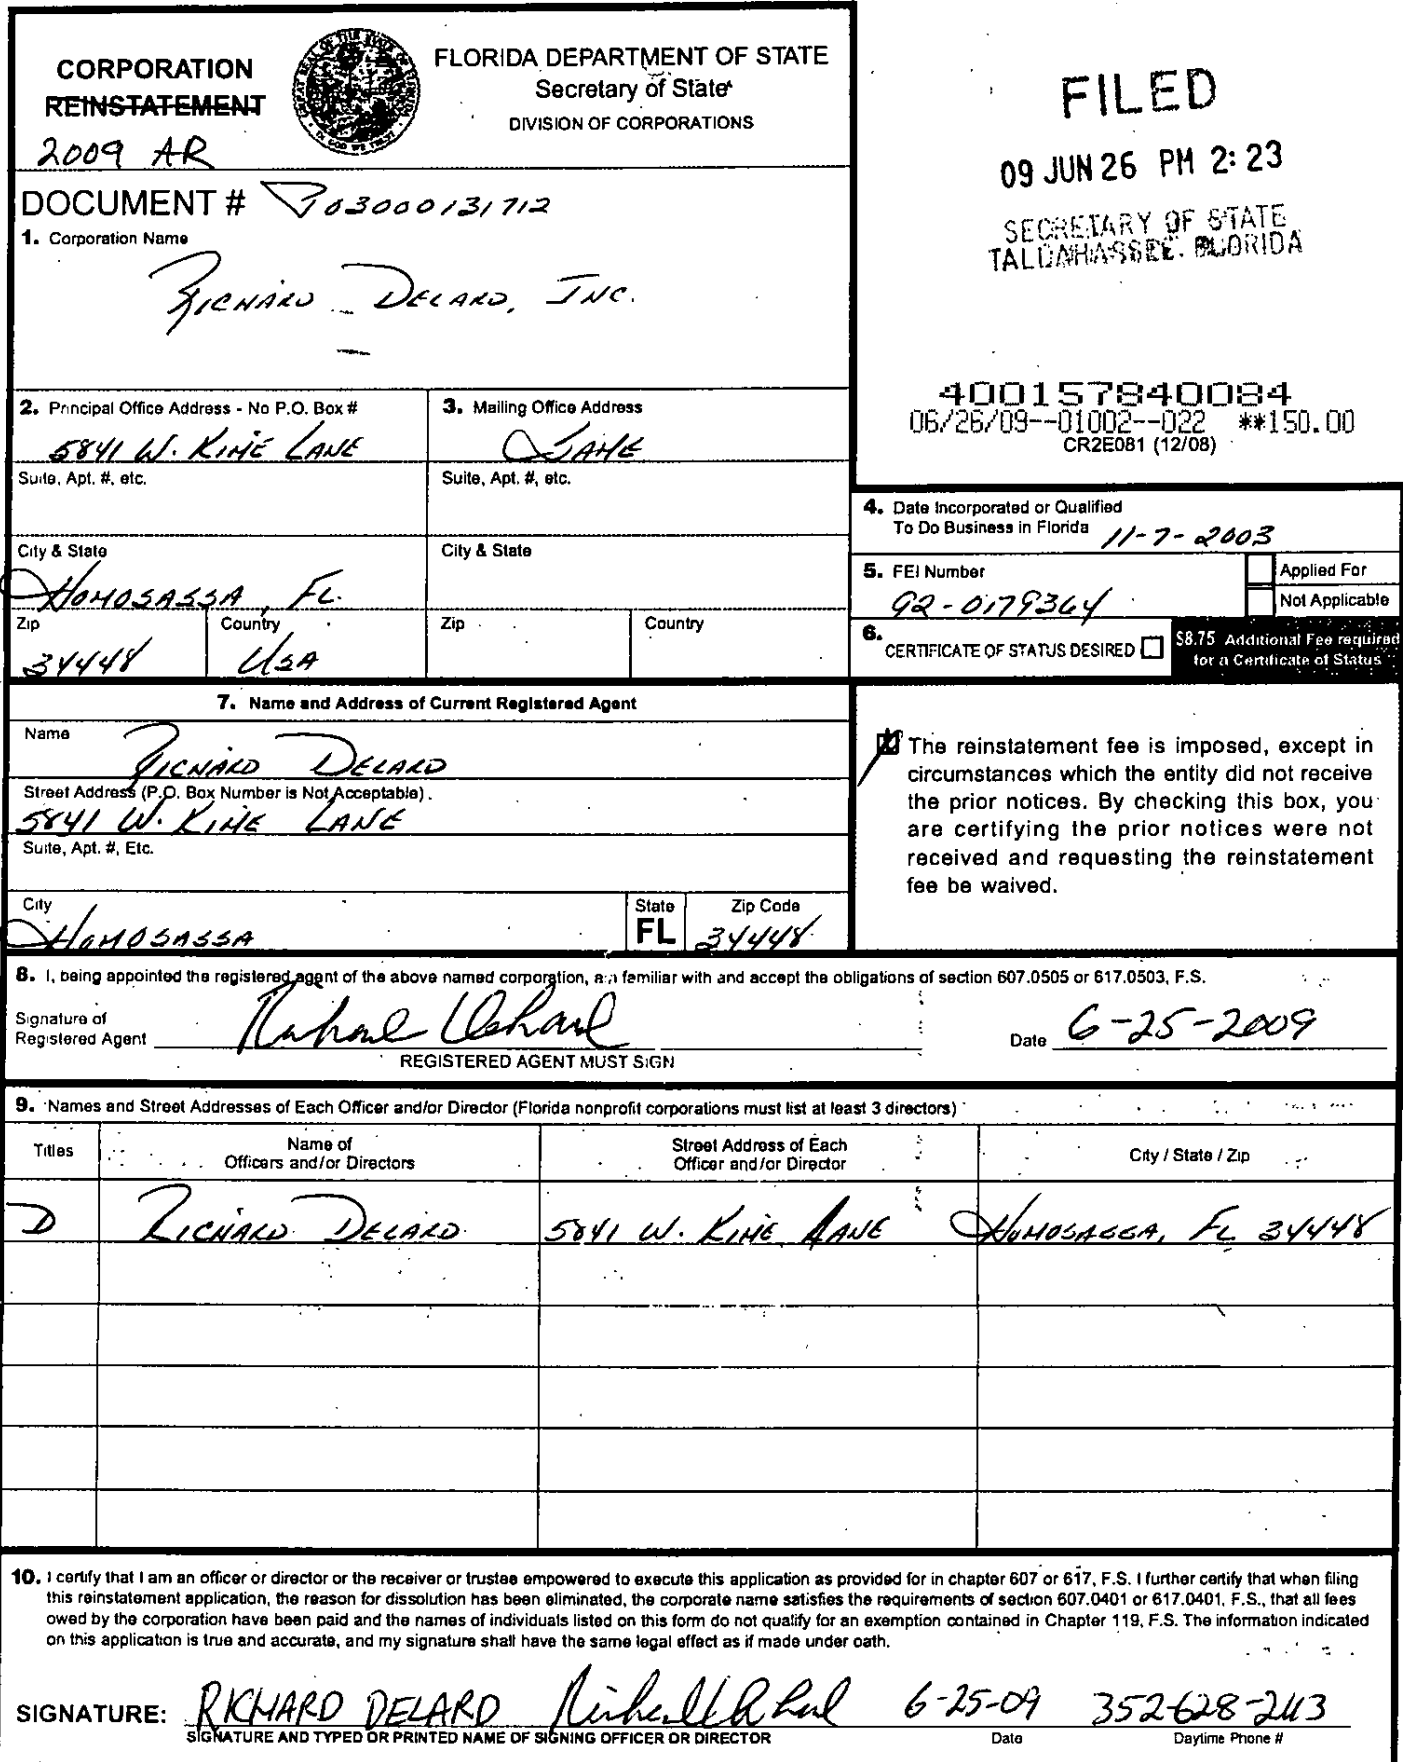 CORPORATION
REINSTATEMENT
2009 AR
FLORIDA DEPARTMENT OF STATE
Secretary of State
DIVISION OF CORPORATIONS
FILED
09 JUN 26 PM 2:23
SECRETARY OF STATE
TALLAHASSEE, FLORIDA
DOCUMENT # P03000131712
1. Corporation Name
RICHARD DELARD, INC.
400157840084
06/26/09--01002--022 **150.00
CR2E081 (12/08)
2. Principal Office Address - No P.O. Box #
5841 W. KIME LANE
3. Mailing Office Address
SAME
Suite, Apt. #, etc.
Suite, Apt. #, etc.
City & State
HOMOSASSA, FL.
City & State
Zip
34448
Country
USA
Zip
Country
4. Date Incorporated or Qualified
To Do Business in Florida 11-7-2003
5. FEI Number
92-0179364
Applied For
Not Applicable
6. CERTIFICATE OF STATUS DESIRED
$8.75 Additional Fee required
for a Certificate of Status
7. Name and Address of Current Registered Agent
Name
RICHARD DELARD
Street Address (P.O. Box Number is Not Acceptable)
5841 W. KIME LANE
Suite, Apt. #, Etc.
City
HOMOSASSA
State
FL
Zip Code
34448
The reinstatement fee is imposed, except in
circumstances which the entity did not receive
the prior notices. By checking this box, you
are certifying the prior notices were not
received and requesting the reinstatement
fee be waived.
8. I, being appointed the registered agent of the above named corporation, am familiar with and accept the obligations of section 607.0505 or 617.0503, F.S.
Signature of
Registered Agent
Date 6-25-2009
REGISTERED AGENT MUST SIGN
9. Names and Street Addresses of Each Officer and/or Director (Florida nonprofit corporations must list at least 3 directors)
Titles
Name of
Officers and/or Directors
Street Address of Each
Officer and/or Director
City / State / Zip
D RICHARD DELARD 5841 W. KIME LANE HOMOSASSA, FL 34448
10. I certify that I am an officer or director or the receiver or trustee empowered to execute this application as provided for in chapter 607 or 617, F.S. I further certify that when filing
this reinstatement application, the reason for dissolution has been eliminated, the corporate name satisfies the requirements of section 607.0401 or 617.0401, F.S., that all fees
owed by the corporation have been paid and the names of individuals listed on this form do not qualify for an exemption contained in Chapter 119, F.S. The information indicated
on this application is true and accurate, and my signature shall have the same legal effect as if made under oath.
SIGNATURE: RICHARD DELARD 6-25-09 352-628-2113
SIGNATURE AND TYPED OR PRINTED NAME OF SIGNING OFFICER OR DIRECTOR
Date
Daytime Phone #